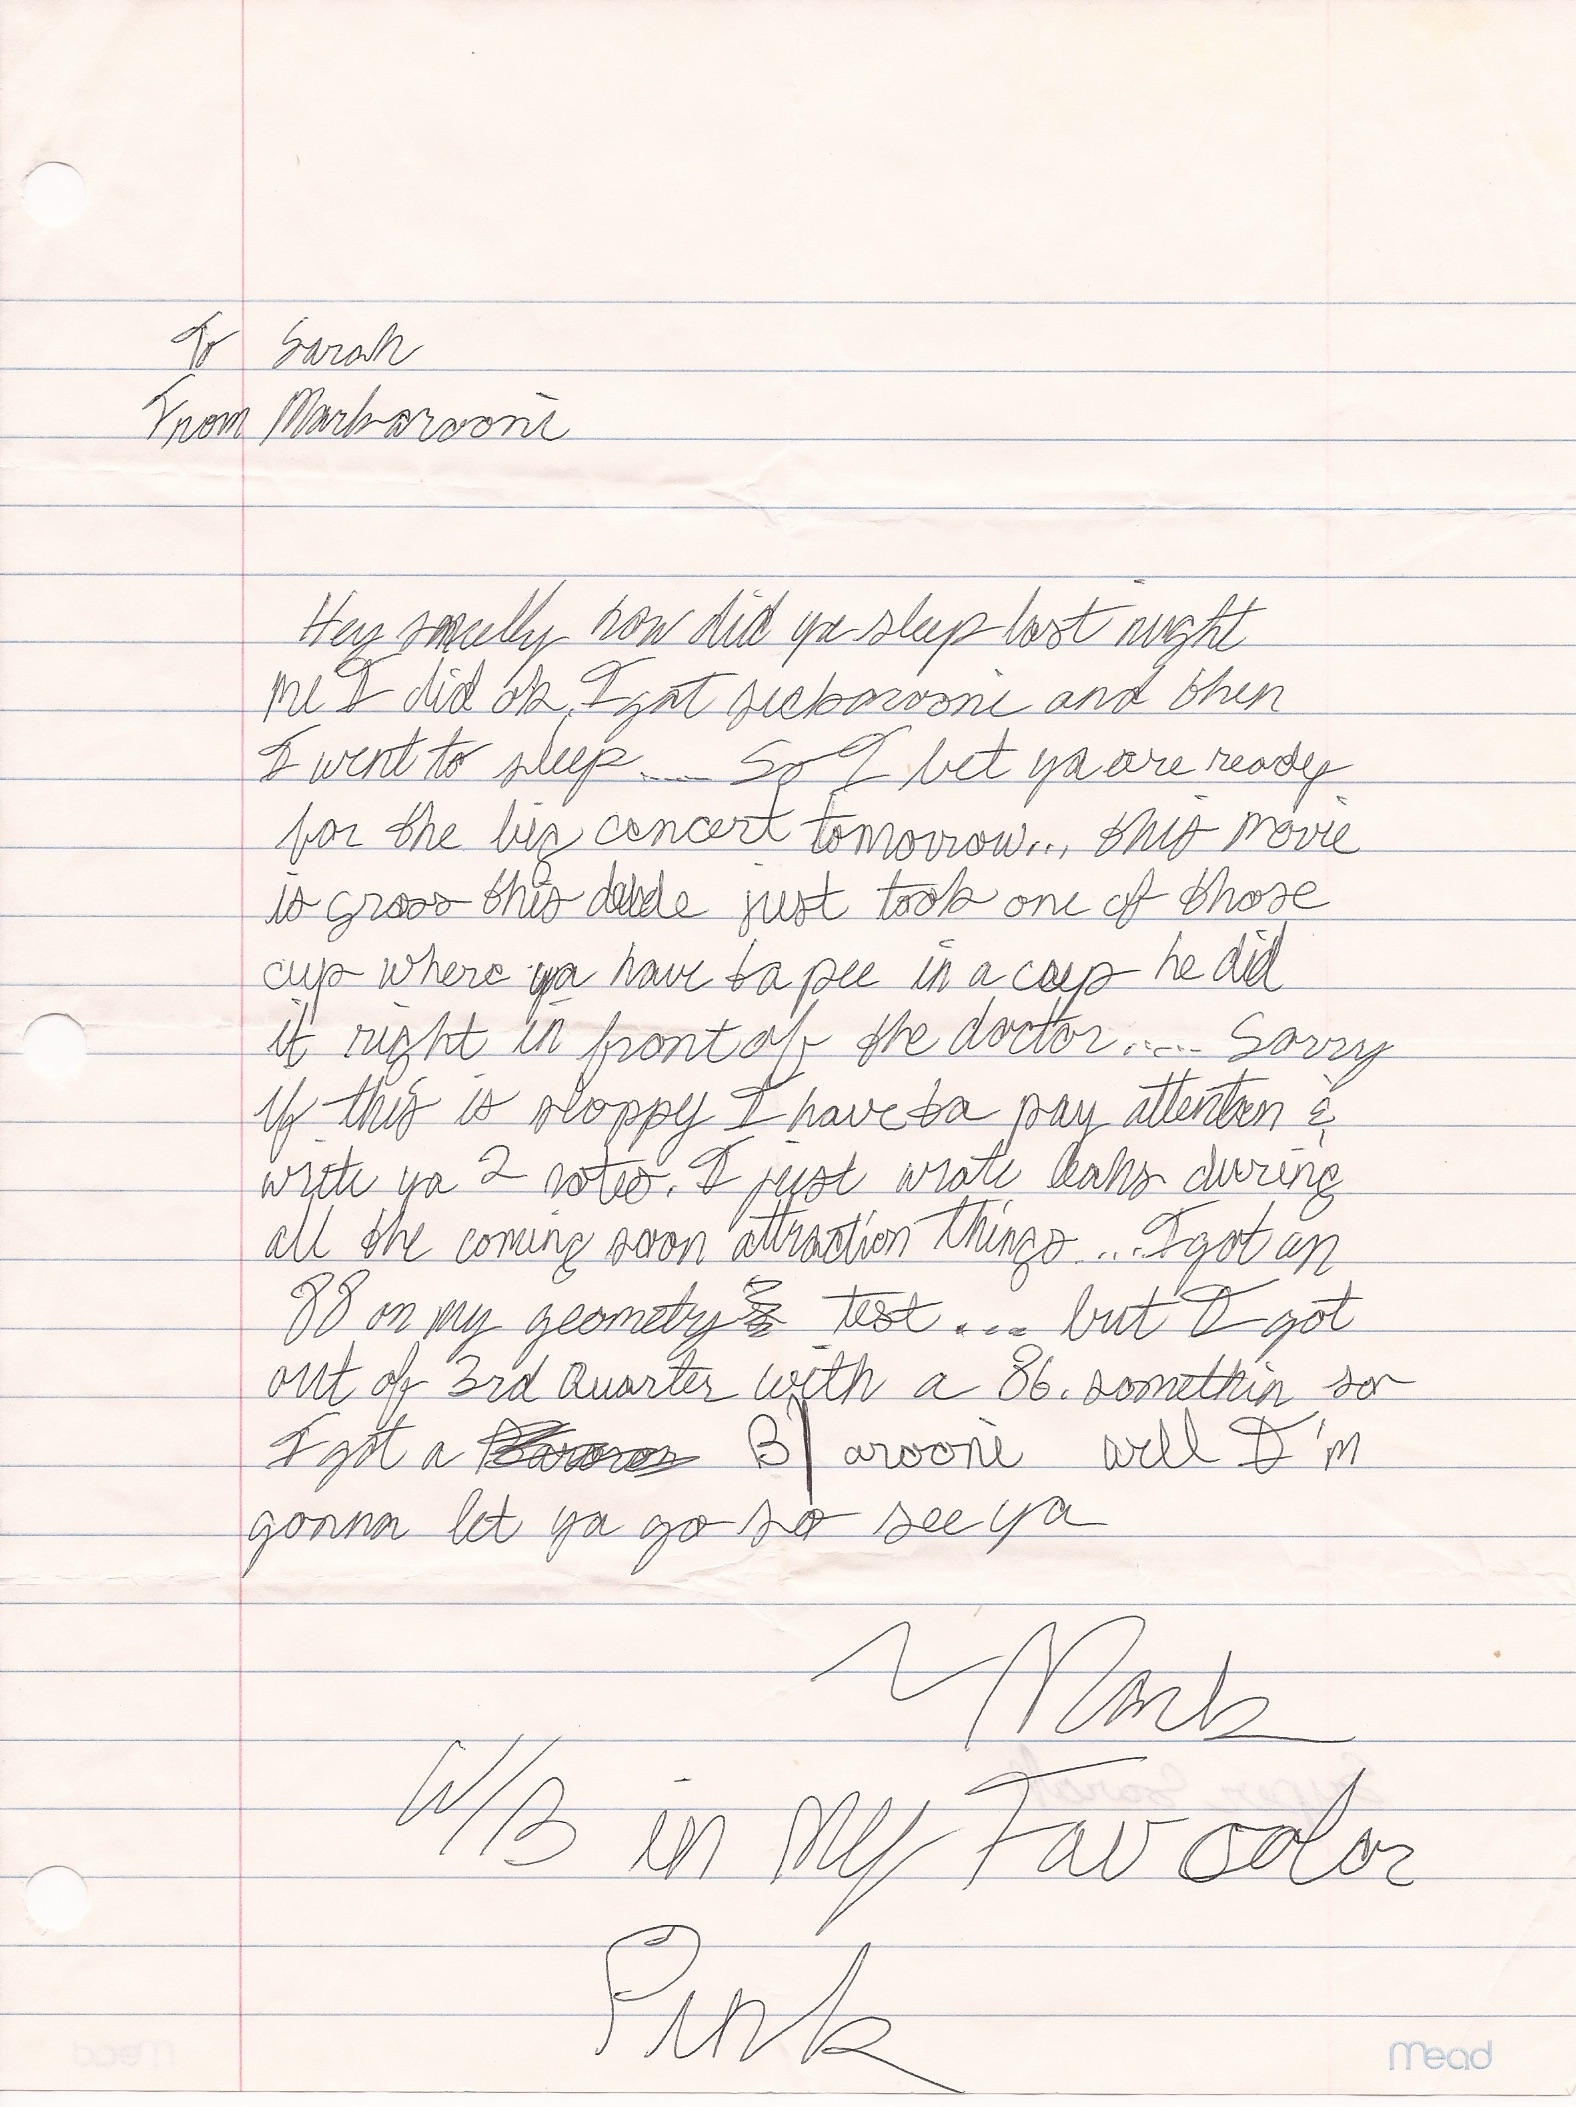 To Sarah
From Markarooni
Hey smelly how did ya sleep last night
me I did ok. I got sickarooni and then
I went to sleep..... So I bet ya are ready
for the big concert tomorrow... this movie
is gross this dude just took one of those
cup where ya have ta pee in a cup he did
it right in front of the doctor..... Sorry
if this is sloppy I have ta pay attention &
write ya 2 notes. I just wrote leahs during
all the coming soon attraction things...I got an
88 on my geometry test.... but I got
out of 3rd Quarter with a 86. somethin so
I got a B|arooni well I'm
gonna let ya go so see ya
~Mark
W/B in my Fav color
Pink
Mead